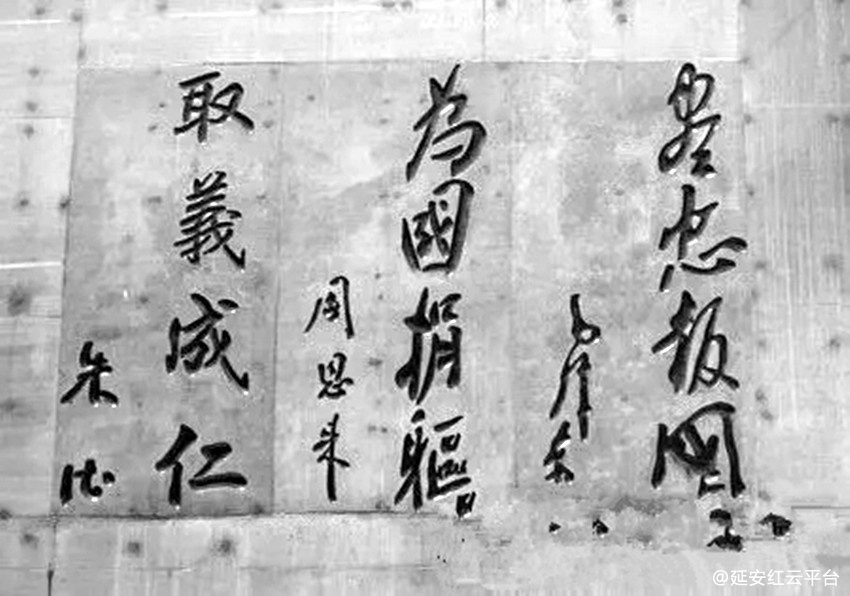 尽忠报国
毛泽东
為國捐軀
周恩来
取義成仁
朱德
@延安红云平台